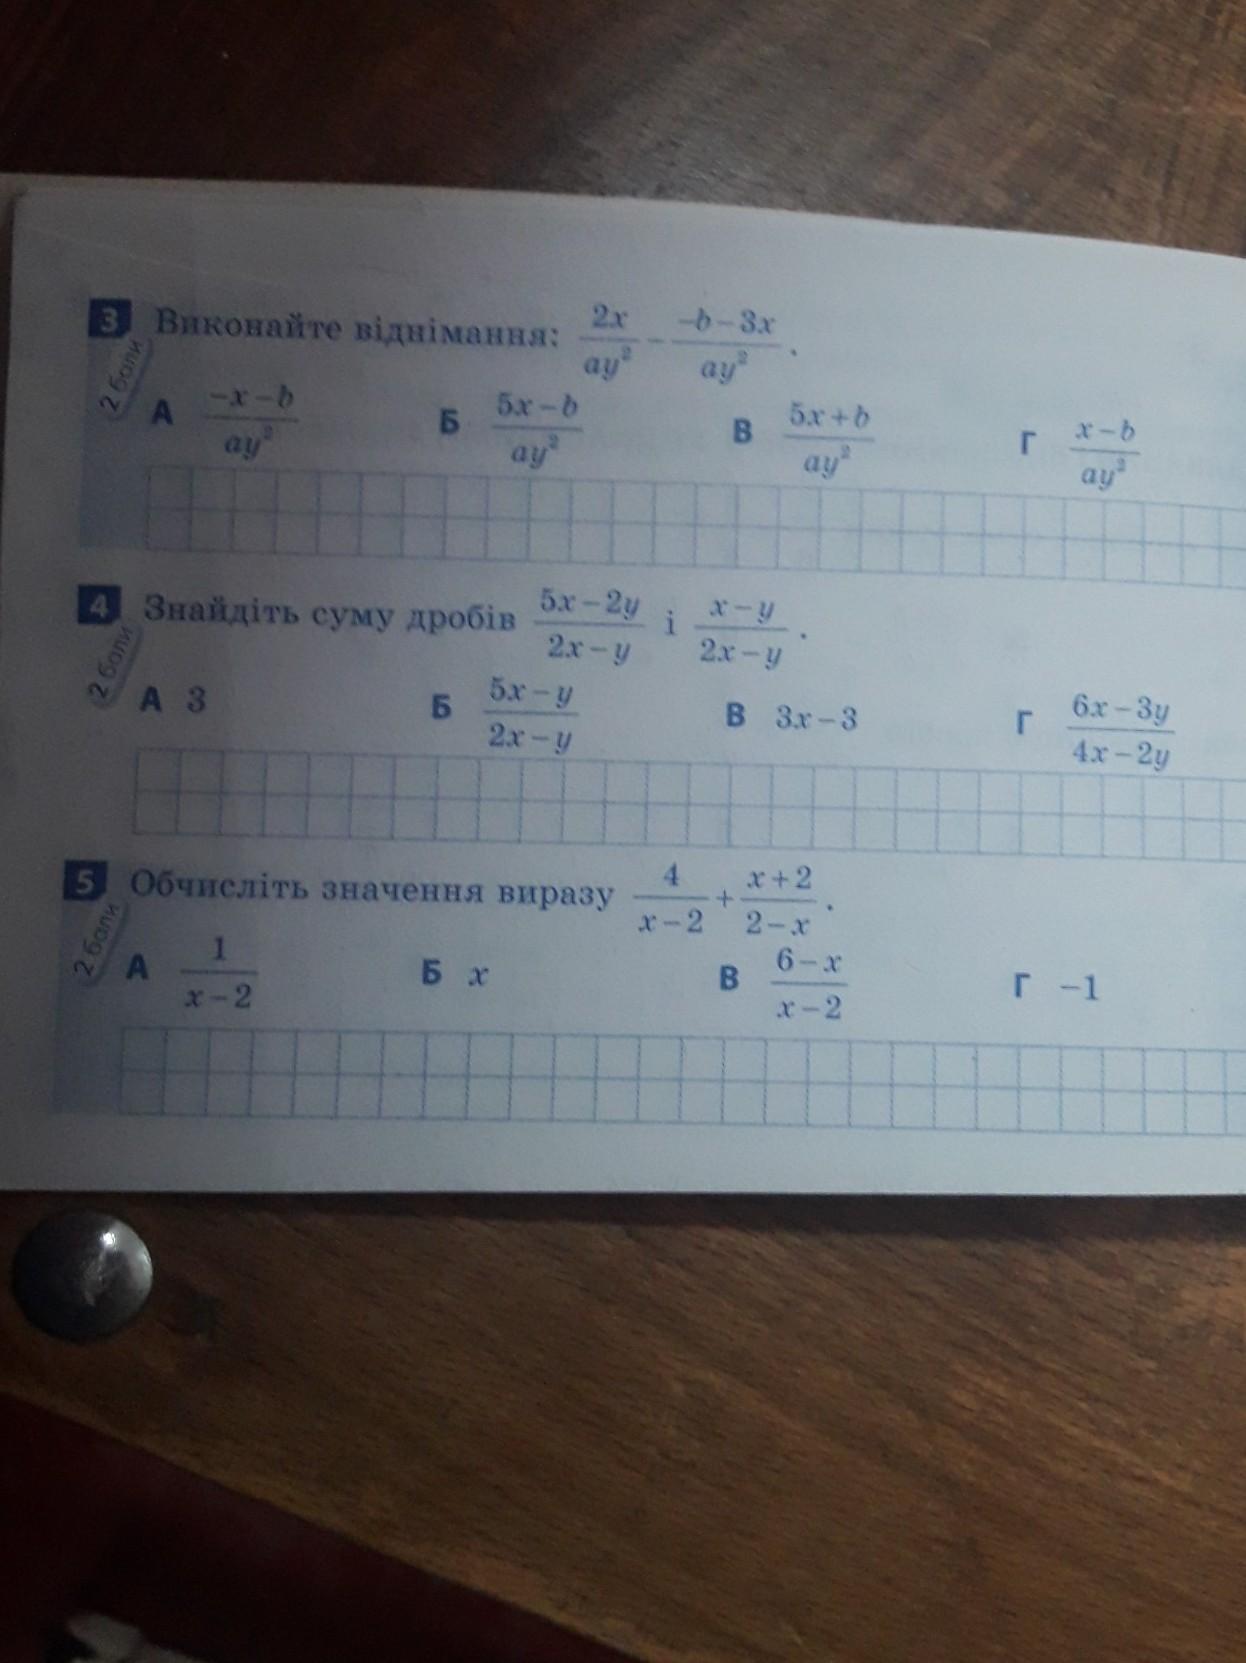 3 Виконайте віднімання: 2x/ay² − (−b−3x)/ay².
2 бали
А (−x−b)/ay² Б (5x−b)/ay² В (5x+b)/ay² Г (x−b)/ay²
4 Знайдіть суму дробів (5x−2y)/(2x−y) і (x−y)/(2x−y).
2 бали
А 3 Б (5x−y)/(2x−y) В 3x−3 Г (6x−3y)/(4x−2y)
5 Обчисліть значення виразу 4/(x−2) + (x+2)/(2−x).
2 бали
А 1/(x−2) Б x В (6−x)/(x−2) Г −1